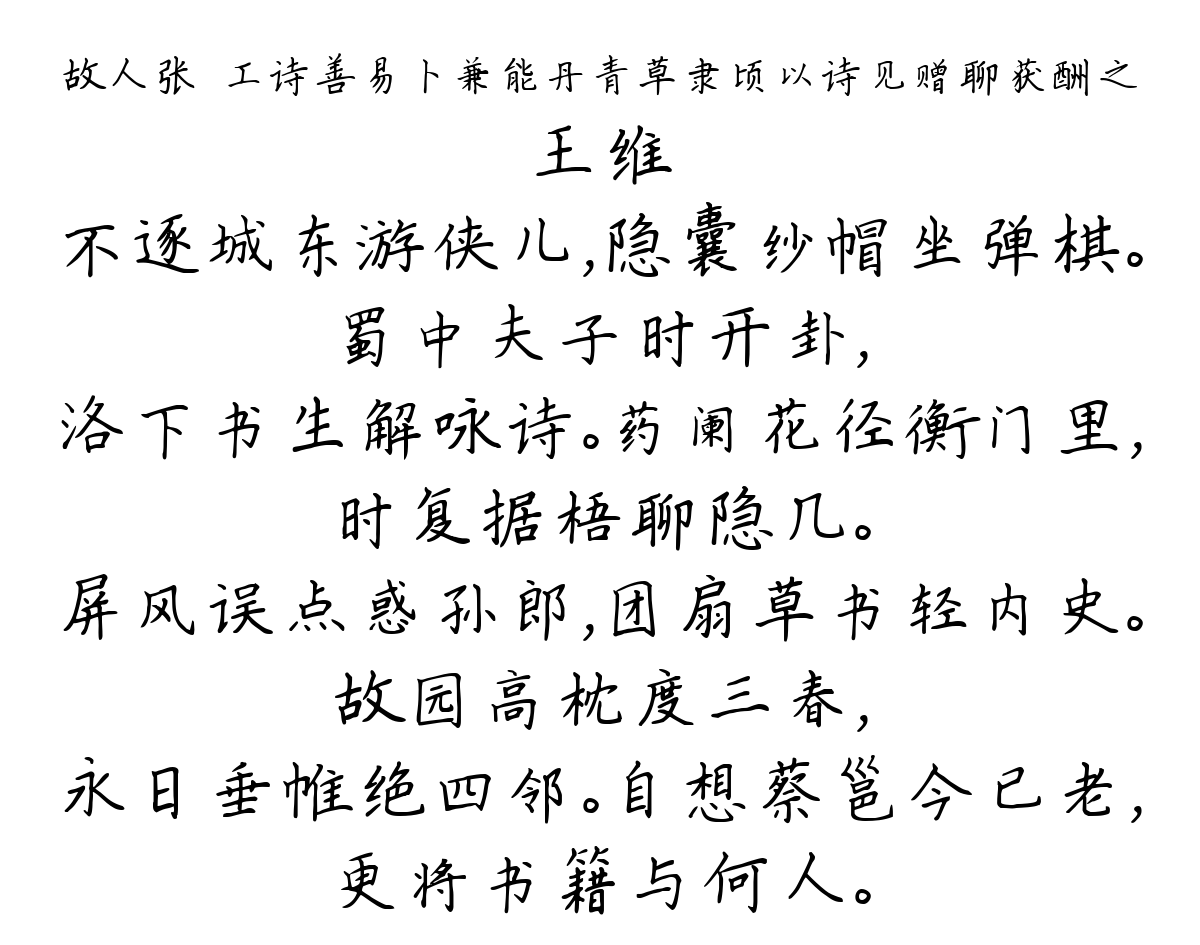 故人张 工诗善易卜兼能丹青草隶顷以诗见赠聊获酬之
王维
不逐城东游侠儿,隐囊纱帽坐弹棋。
蜀中夫子时开卦,
洛下书生解咏诗。药阑花径衡门里,
时复据梧聊隐几。
屏风误点惑孙郎,团扇草书轻内史。
故园高枕度三春,
永日垂帷绝四邻。自想蔡邕今已老,
更将书籍与何人。